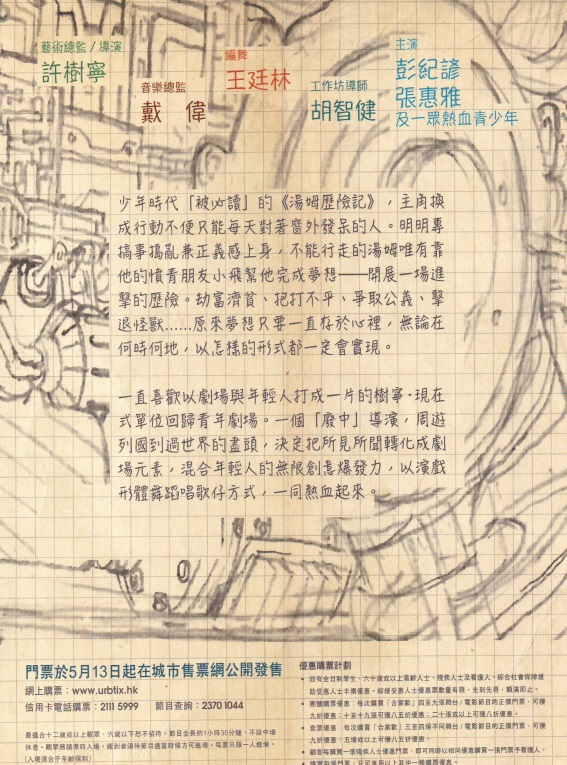 藝術總監 / 導演
許樹寧
音樂總監
戴 偉
編舞
王廷林
工作坊導師
胡智健
主演
彭紀諺
張惠雅
及一眾熱血青少年
少年時代「被必讀」的《湯姆歷險記》，主角換
成行動不便只能每天對著窗外發呆的人。明明專
搞事搗亂兼正義感上身，不能行走的湯姆唯有靠
他的憤青朋友小飛幫他完成夢想——開展一場進
擊的歷險。劫富濟貧、把打不平、爭取公義、擊
退怪獸......原來夢想只要一直存於心裡，無論在
何時何地，以怎樣的形式都一定會實現。
一直喜歡以劇場與年輕人打成一片的樹寧·現在
式單位回歸青年劇場。一個「廢中」導演，周遊
列國到過世界的盡頭，決定把所見所聞轉化成劇
場元素，混合年輕人的無限創意爆發力，以演戲
形體舞蹈唱歌仔方式，一同熱血起來。
門票於5月13日起在城市售票網公開發售
網上購票：www.urbtix.hk
信用卡電話購票：2111 5999 節目查詢：2370 1044
最適合十二歲或以上觀眾，六歲以下恕不招待。節目全長約1小時30分鐘，不設中場
休息。觀眾務請準時入場，遲到者須待節目適當時候方可進場。每票只限一人進場。
(入場須合乎年齡限制)
優惠購票計劃
• 設有全日制學生、六十歲或以上高齡人士、殘疾人士及看護人、綜合社會保障援
助受惠人士半價優惠。綜援受惠人士優惠票數量有限，先到先得，額滿即止。
• 團體購票優惠：每次購買「合家歡」四至九張舞台/電影節目的正價門票，可獲
九折優惠：十至十九張可獲八五折優惠：二十張或以上可獲八折優惠。
• 套票優惠：每次購買「合家歡」三至四場不同舞台/電影節目的正價門票，可獲
九折優惠：五場或以上可獲八折優惠。
• 顧客每購買一張殘疾人士優惠門票，即可同時以相同優惠購買一張門票予看護人。